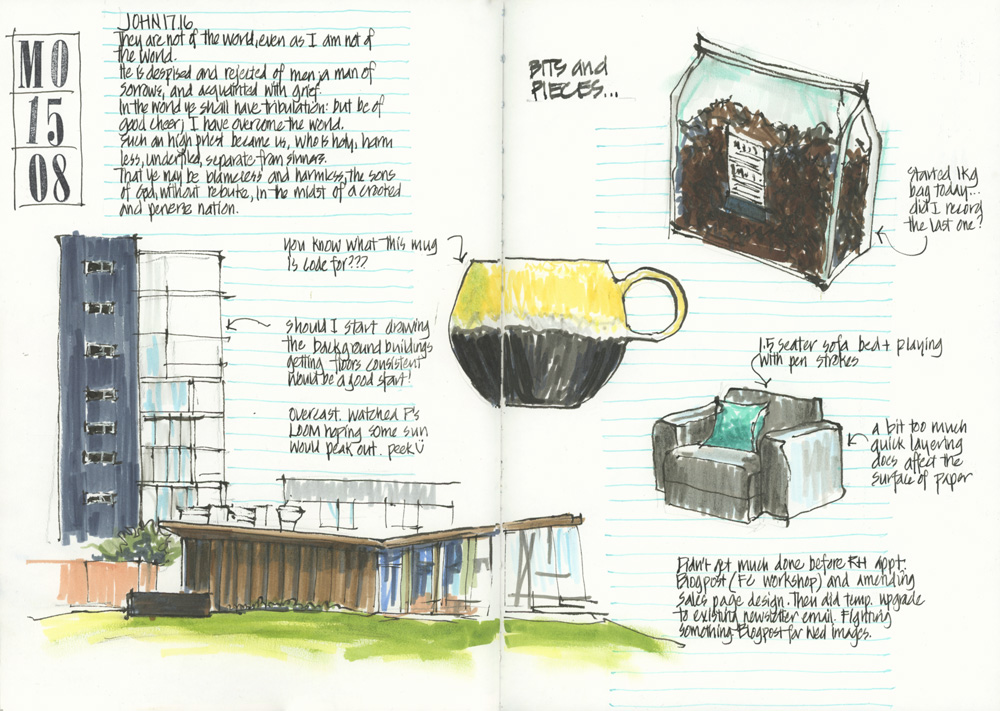 MO
15
08
JOHN 17.16
They are not of the world, even as I am not of
the world.
He is despised and rejected of men, a man of
sorrows, and acquainted with grief.
In the world ye shall have tribulation: but be of
good cheer; I have overcome the world.
Such an high priest became us, who is holy, harm
less, undefiled, separate from sinners.
That ye may be blameless and harmless, the sons
of God, without rebuke, in the midst of a crooked
and perverse nation.
you know what this mug
is code for???
should I start drawing
the background buildings
getting floors consistent
would be a good start!
Overcast. Watched P's
Loom hoping some sun
would peak out. peek
BITS and
PIECES...
Started 1kg
bag today...
did I record
the last one?
1.5 seater sofa bed + playing
with pen strokes
a bit too much
quick layering
does affect the
surface of paper
Didn't get much done before RH appt.
Blogpost (FC workshop) and amending
sales page design. Then did temp. upgrade
to existing newsletter email. Fighting
something. Blogpost for Wed images.